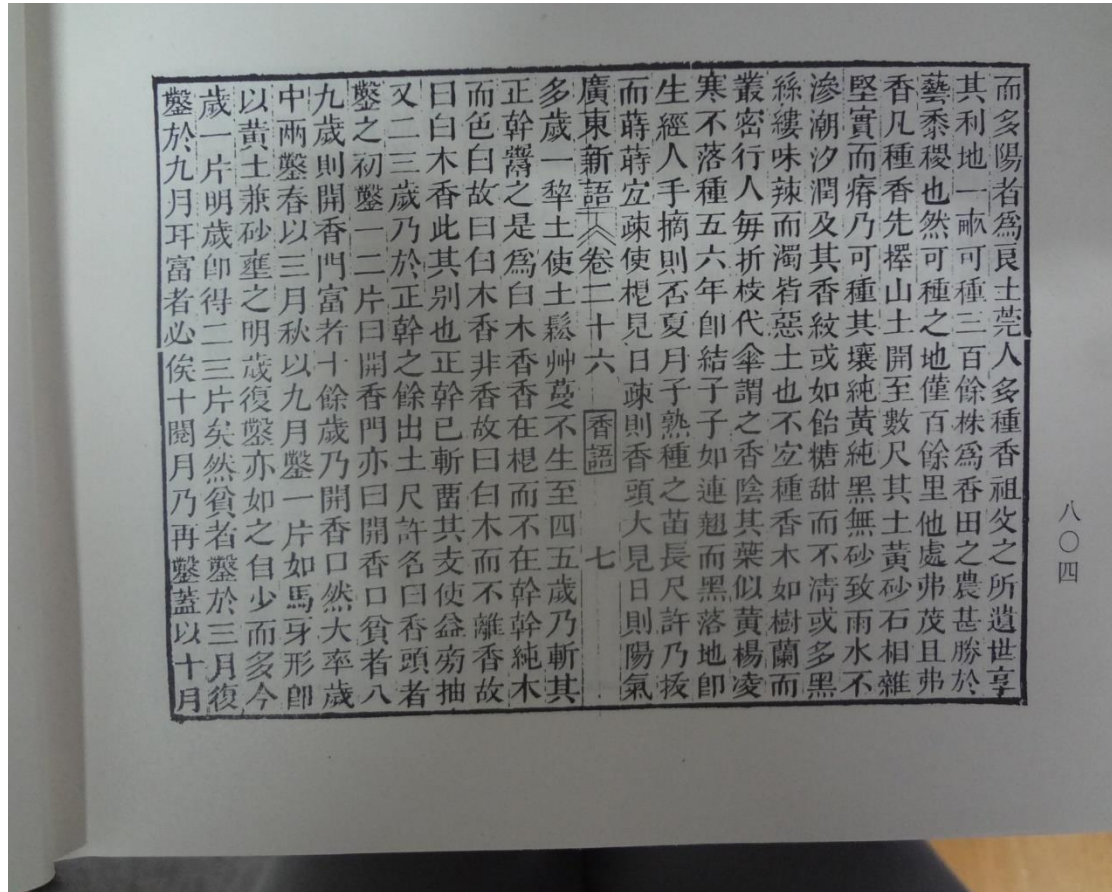 而多陽者爲良土莞人多種香祖父之所遺世享
其利地一畝可種三百餘株爲香田之農甚勝於
藝黍稷也然可種之地僅百餘里他處弗茂且弗
香凡種香先擇山土開至數尺其土黃砂石相雜
堅實而瘠乃可種其壤純黃純黑無砂致雨水不
滲潮汐潤及其香紋或如飴糖甜而不淸或多黑
絲縷味辣而濁皆惡土也不宐種香木如樹蘭而
叢密行人每折枝代傘謂之香陰其葉似黃楊凌
寒不落種五六年卽結子子如連翹而黑落地卽
生經人手摘則否夏月子熟種之苗長尺許乃拔
而蒔蒔宐疎使根見日疎則香頭大見日則陽氣
廣東新語 卷二十六 香語 七
多歲一犂土使土鬆艸蔓不生至四五歲乃斬其
正幹鬻之是爲白木香香在根而不在幹幹純木
而色白故曰白木香非香故曰白木而不離香故
曰白木香此其别也正幹已斬畱其支使益旁抽
又二三歲乃於正幹之餘出土尺許名曰香頭者
鑿之初鑿一二片曰開香門亦曰開香口貧者八
九歲則開香門富者十餘歲乃開香口然大率歲
中兩鑿春以三月秋以九月鑿一片如馬牙形卽
以黃土兼砂壅之明歲復鑿亦如之自少而多今
歲一片明歲卽得二三片矣然貧者鑿於三月復
鑿於九月耳富者必俟十閱月乃再鑿蓋以十月
八〇四